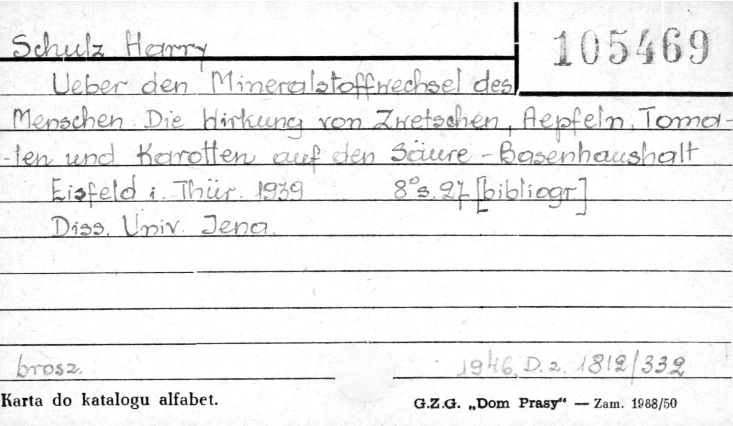 Schulz Harry
105469
Ueber den Mineralstoffwechsel des
Menschen Die Wirkung von Zwetschen, Aepfeln, Toma-
-ten und Karotten auf den Säure-Basenhaushalt
Eisfeld i. Thür. 1939 8° s. 27 [bibliogr]
Diss. Univ. Jena.
brosz. 1946. D. z. 1812/332
Karta do katalogu alfabet. G.Z.G. „Dom Prasy" — Zam. 1988/50